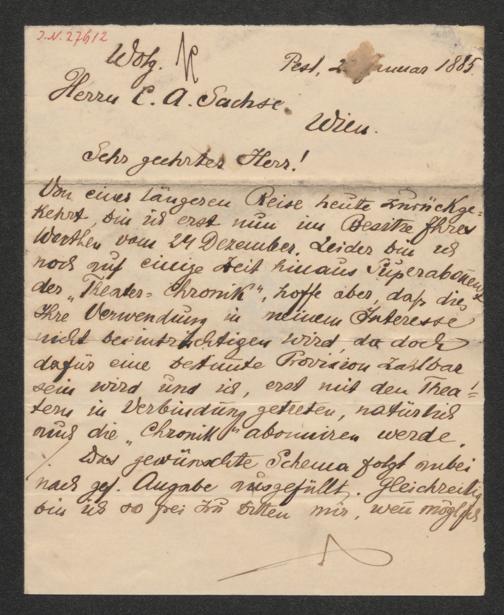 J.N. 27612
Wolg.
Pest, 2 Januar 1885
Herrn C. A. Sachse
Wien.
Sehr geehrter Herr!
Von einer längeren Reise heute zurückge-
kehrt, bin ich erst nun im Besitze Ihres
Werthen vom 24 Dezember. Leider bin ich
noch auf einige Zeit hinaus Superabonent
der „Theater-Chronik“, hoffe aber, daß dies
Ihre Verwendung in meinem Interesse
nicht beeinträchtigen wird, da doch
dafür eine bestimte Provision zahlbar
sein wird und ich, erst mit den Thea-
tern in Verbindung getreten, natürlich
auch die „Chronik“ abonniren werde.
Das gewünschte Schema folgt anbei
nach gef. Angabe ausgefüllt. Gleichzeitig
bin ich so frei zu bitten mir, wen möglich